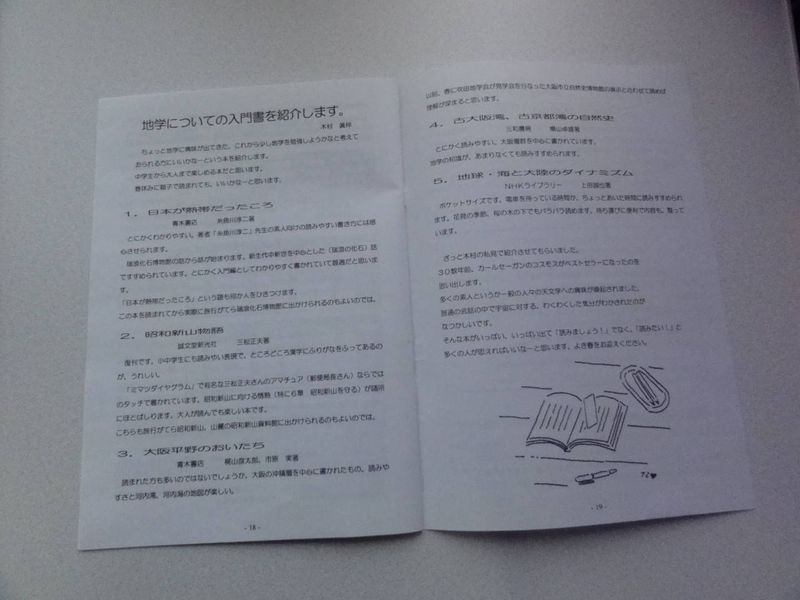 地学についての入門書を紹介します。
木村
ちょっと地学に興味が出てきた、これから少し地学を勉強しようかなと考えて
おられる方にいいかなーという本を紹介します。
中学生から大人まで楽しめる本だと思います。
春休みに親子で読まれても、いいかなーと思います。
1. 日本が熱帯だったころ
青木書店 糸魚川淳二著
とにかくわかりやすい。著者「糸魚川淳二」先生の素人向けの読みやすい書き方には感
心させられます。
瑞浪化石博物館の話から話が始まります。新生代中新世を中心とした(瑞浪の化石)話
ですすめられています。とにかく入門編としてわかりやすく書かれていて最適だと思いま
す。
「日本が熱帯だったころ」という題も何か人をひきつけます。
この本を読まれてから実際に旅行がてら瑞浪化石博物館に出かけられるのもよいのでは。
2. 昭和新山物語
誠文堂新光社 三松正夫著
復刊です。小中学生にも読みやい表現で、ところどころ漢字にふりがなをふってあるの
が、うれしい。
「ミマツダイヤグラム」で有名な三松正夫さんのアマチュア(郵便局長さん)ならでは
のタッチで書かれています。昭和新山に向ける情熱(特に6章 昭和新山を守る)が随所
にほとばしります。大人が読んでも楽しい本です。
こちらも旅行がてら昭和新山、山麓の昭和新山資料館に出かけられるのもよいのでは。
3. 大阪平野のおいたち
青木書店 梶山彦太郎、市原 実著
読まれた方も多いのではないでしょうか。大阪の沖積層を中心に書かれたもの。読みや
すさと河内湾、河内潟の地図が楽しい。
- 18 -
以前、春に吹田地学会が見学会を行なった大阪市立自然史博物館の展示と合わせて読めば
理解が深まると思います。
4. 古大阪湾、古京都湾の自然史
三和書房 横山卓雄著
とにかく読みやすい。大阪層群を中心に書かれています。
地学の知識が、あまりなくても読みすすめられます。
5. 地球・海と大陸のダイナミズム
NHKライブラリー 上田誠也著
ポケットサイズです。電車を待っている時間が、ちょっとあいた時間に読みすすめられ
ます。花見の季節、桜の木の下でもパラパラ読めます。持ち運びに便利で内容も、整って
います。
ざっと木村の私見で紹介させてもらいました。
30数年前、カールセーガンのコスモスがベストセラーになったのを
思い出します。
多くの素人というか一般の人々の天文学への興味が喚起されました。
普通の会話の中で宇宙に対する、わくわくした気分がわかされたのが
なつかしいです。
そんな本がいっぱい、いっぱい出て「読みましょう!」でなく、「読みたい!」と
多くの人が思えればいいなーと思います。よき春をお迎えください。
- 19 -